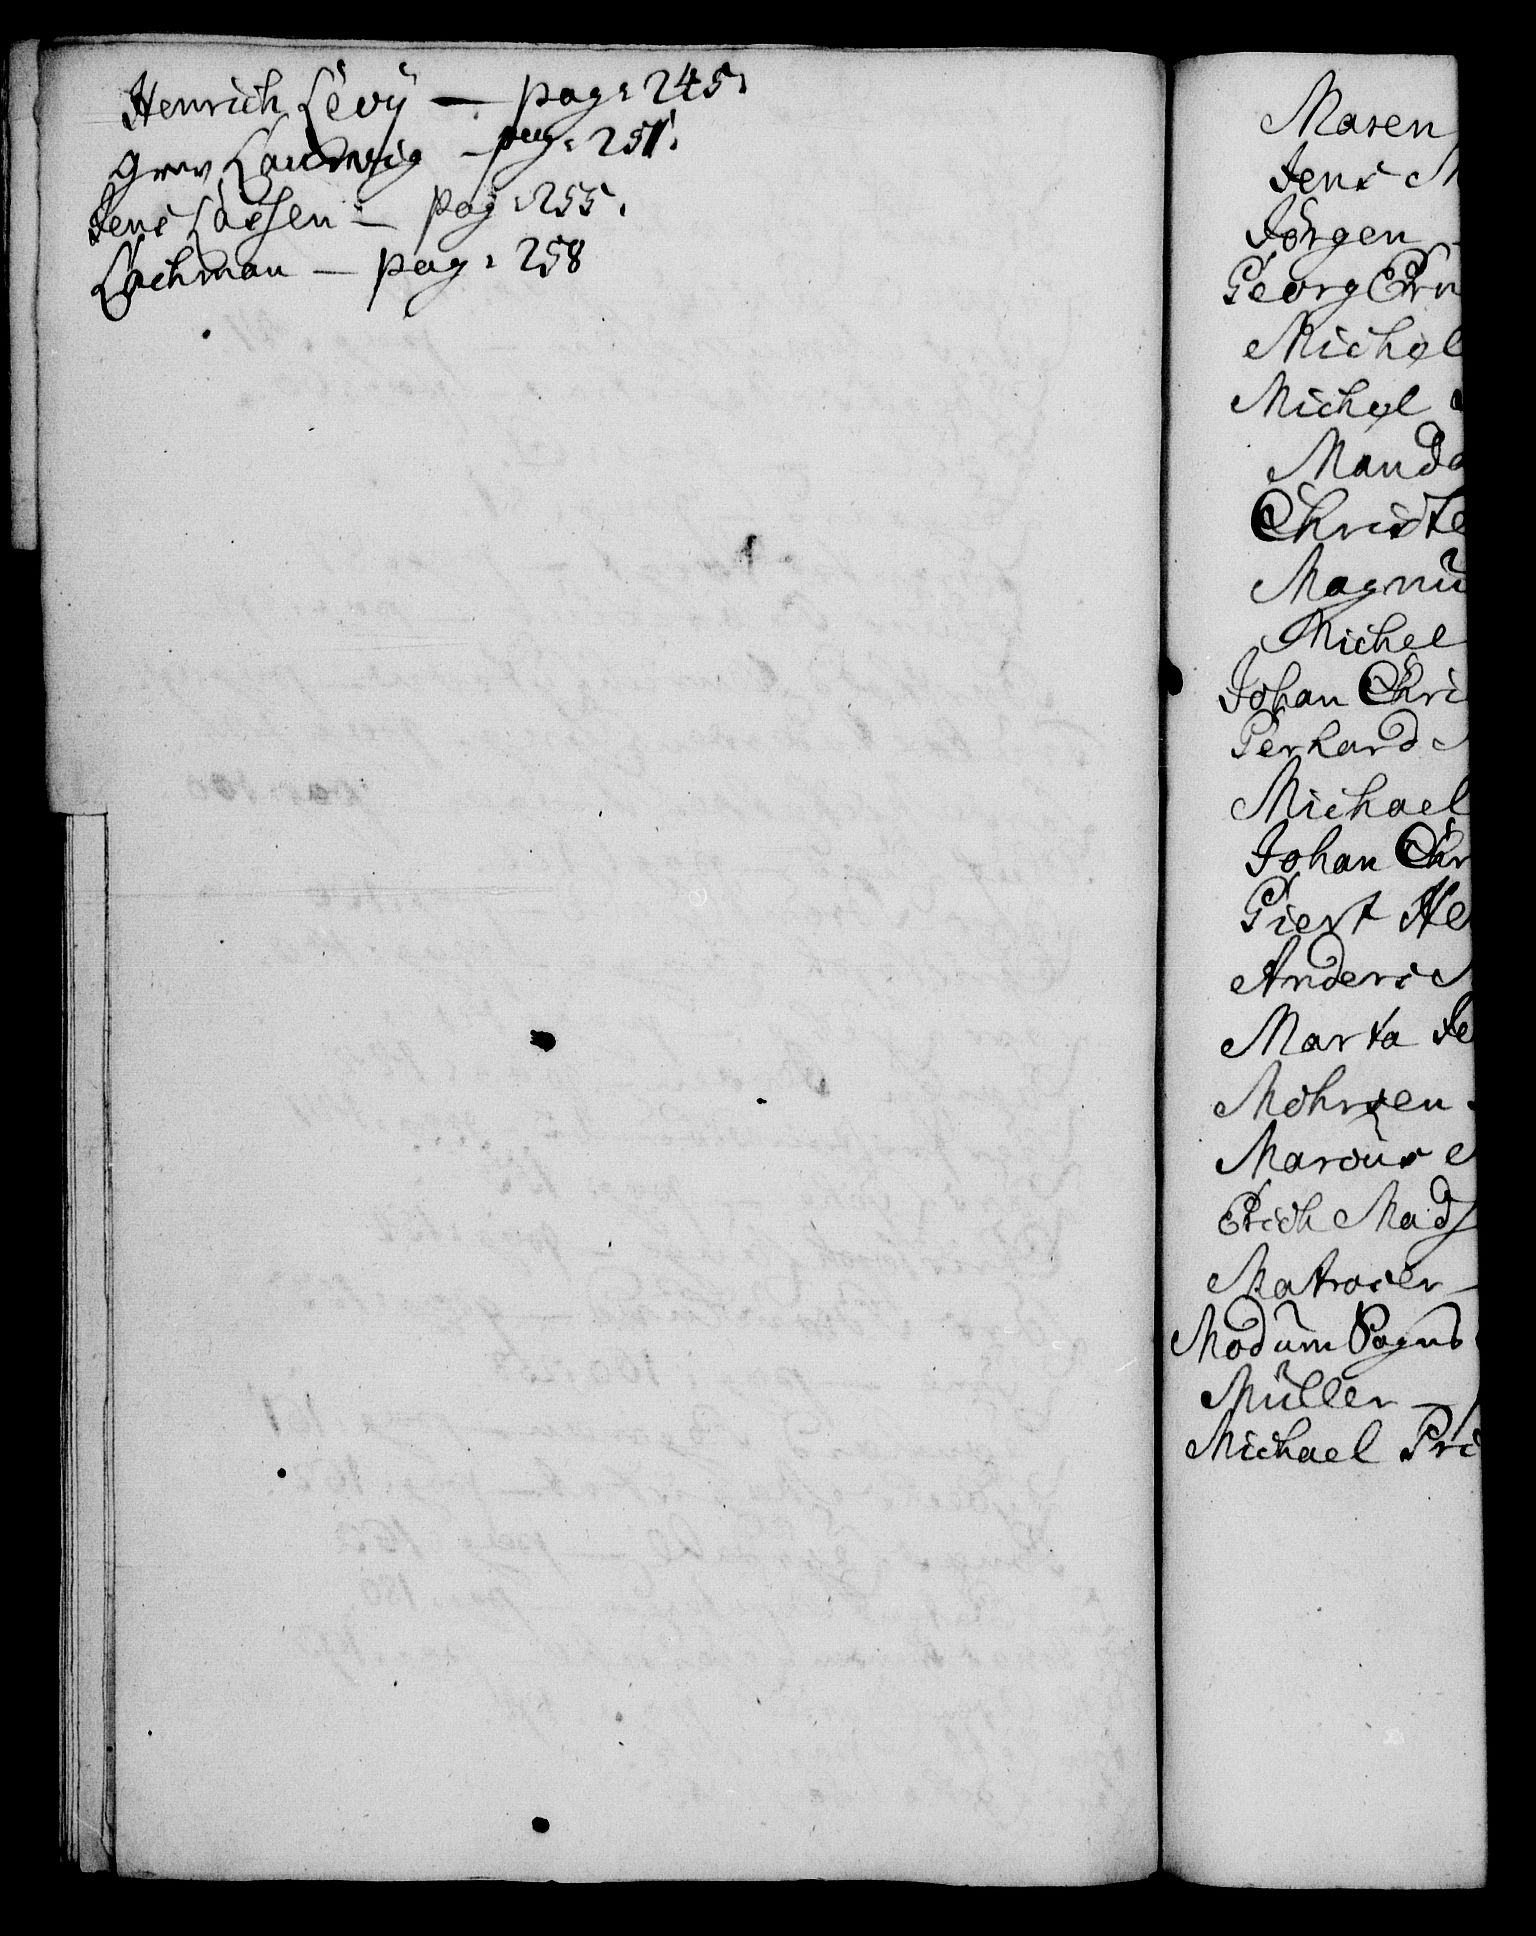 Henrich Levÿ — pag: 245.
Grev Laudwig — pag: 251.
Jens Lassen — pag: 255.
Lachman — pag: 258
Maren
Jens M
Jörgen
Georg Ern
Michel
Michel
Manda
Christe
Magnu
Michel
Johan Chri
Gerhard
Michael
Johan Chr
Giert He
Anders M
Marta Je
Möhrsen
Marcus
Erich Mads
Matroser —
Modum Pogns
Müller —
Michael Pri